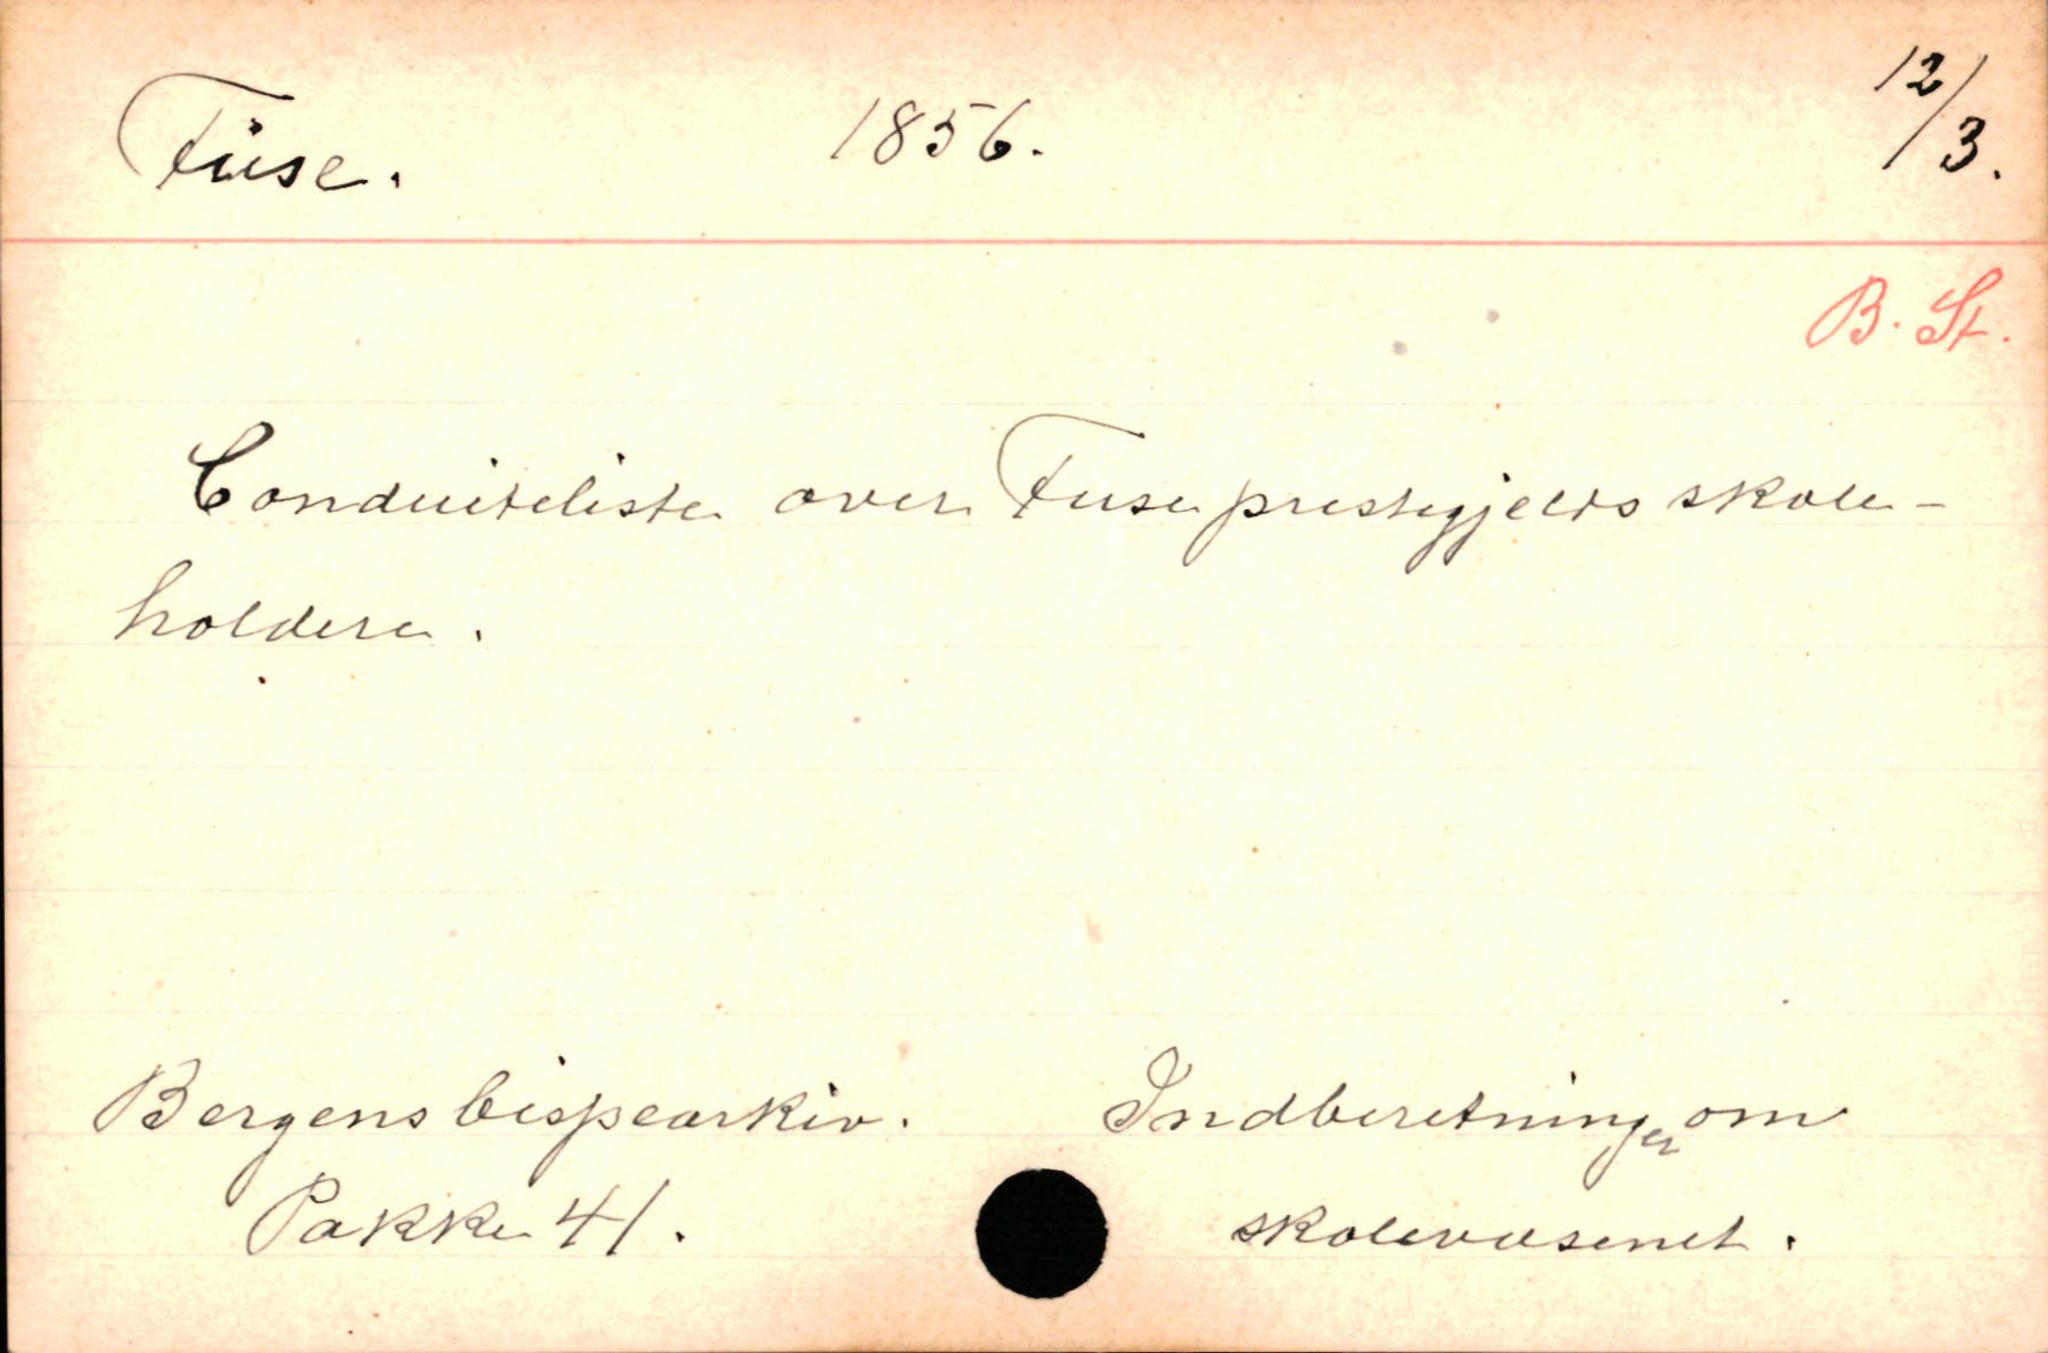 Füse. 1856. 12/3.
B. St.
Conduiteliste over Fuse prestegjelds skole-
holdere.
Bergens bispearkiv. Indberetninger om
Pakke 41. skolevæsenet.